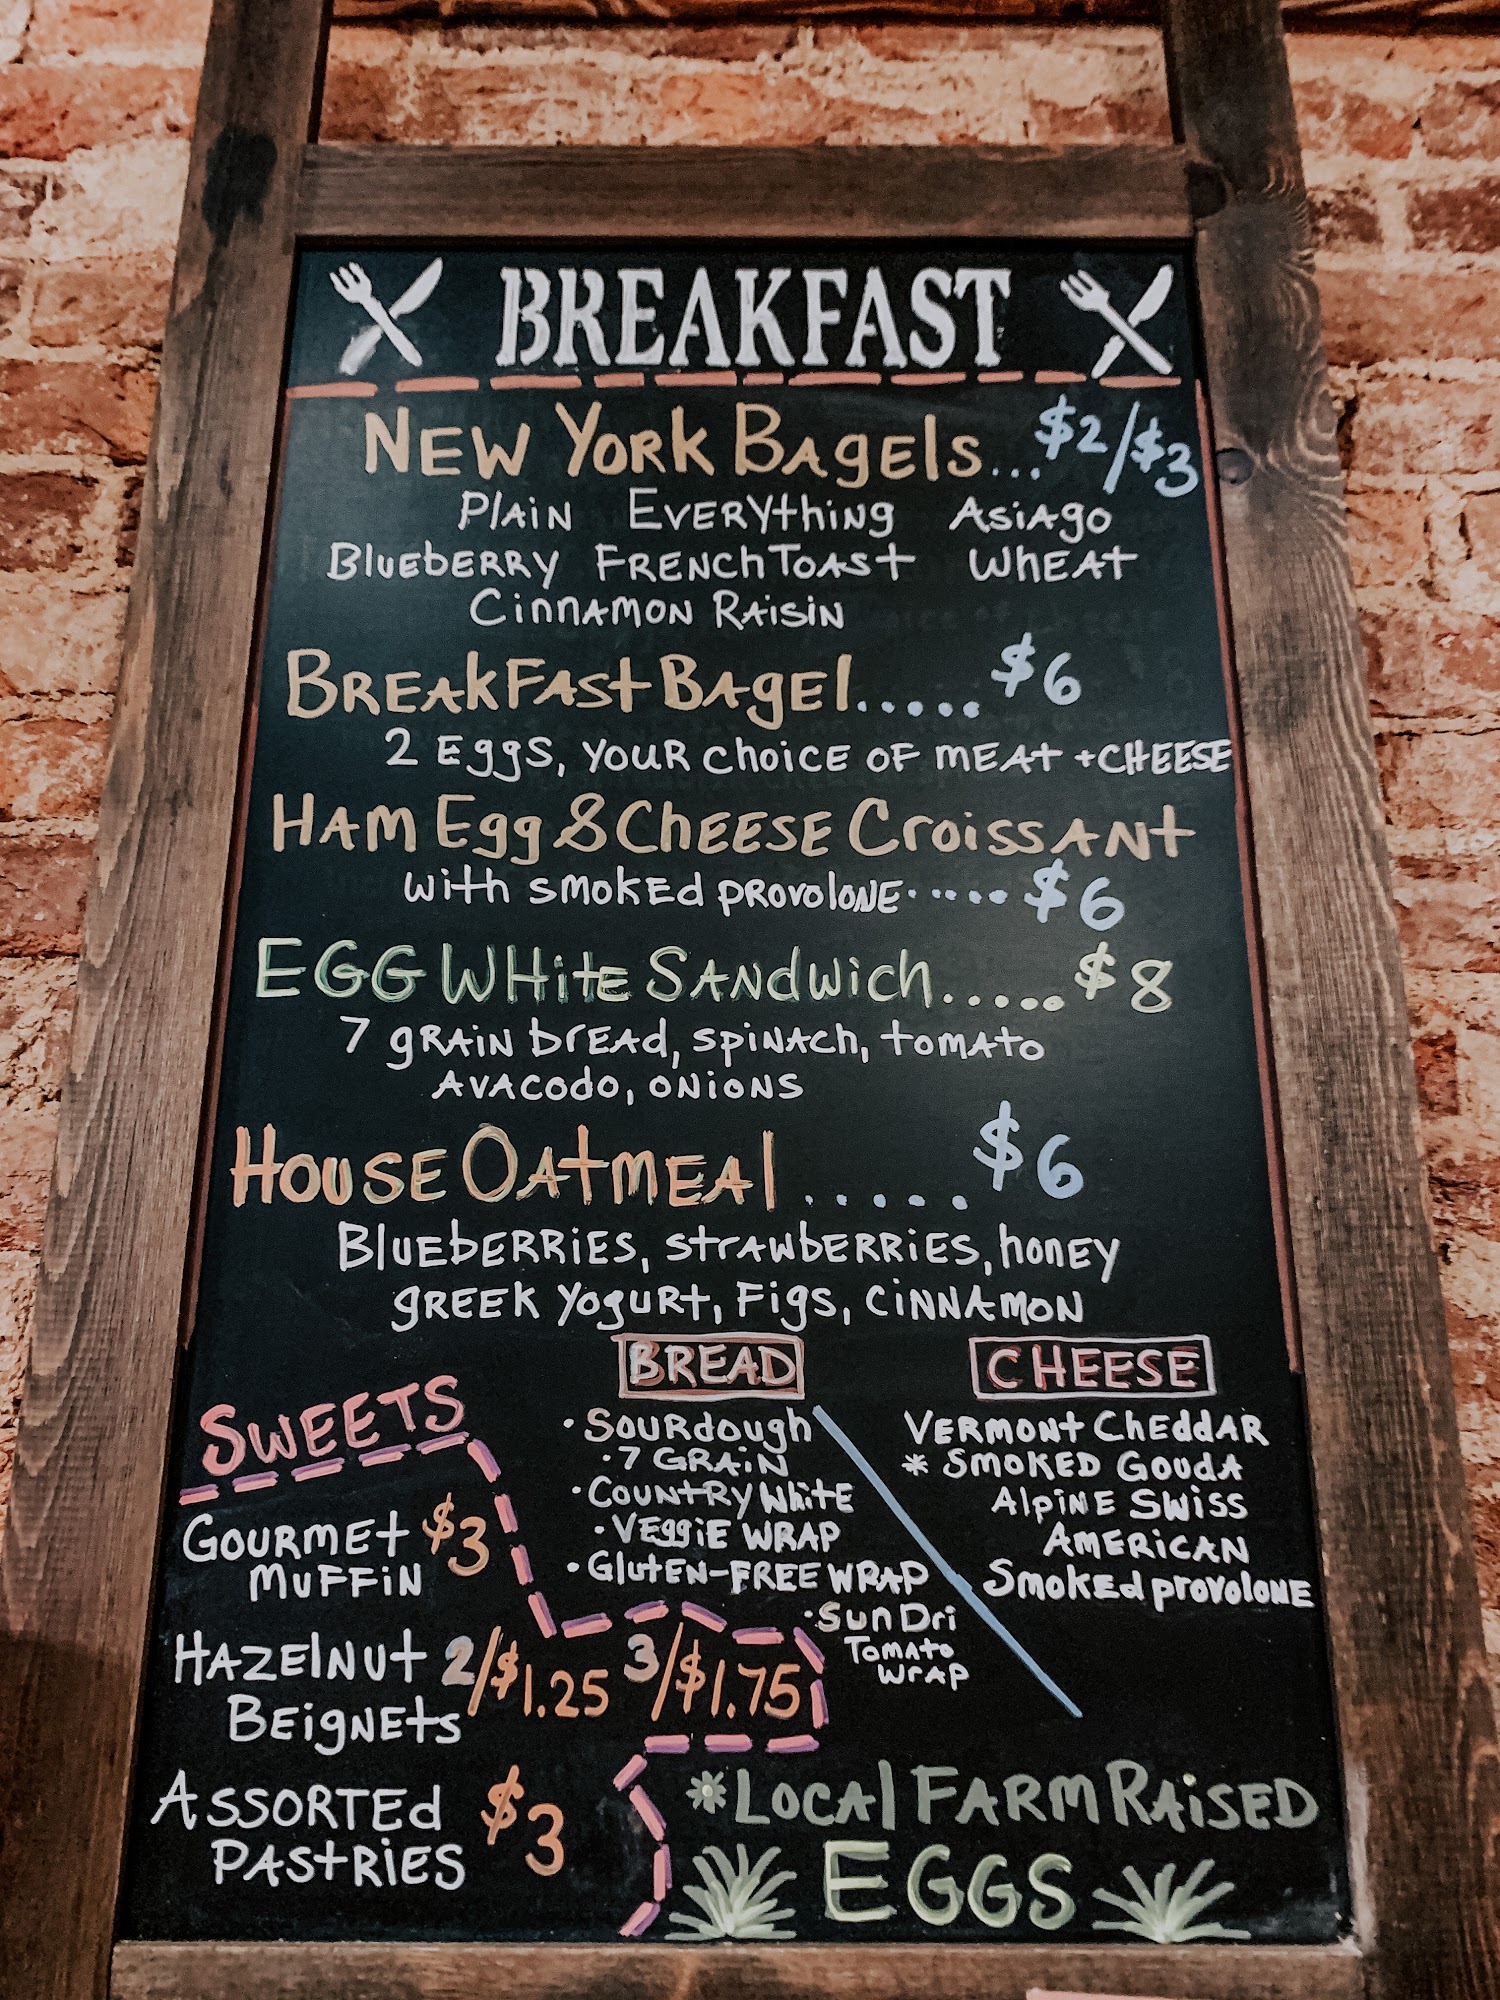 BREAKFAST
NEW YORK BAgEls...$2/$3
PlAiN EVERYthiNg AsiAgo
BluebERRY FRENchToAst WhEAt
CinnAMON RAisiN
BREAkFAst BAgEl.....$6
2 Eggs, YOUR choicE OF MEAt + CHEESE
HAm Egg & ChEESE CroissANt
with smokEd pRovoloNE.....$6
EGG WHitE SANdwich.....$8
7 gRAiN brEAd, spiNAch, tomAto
AVACodo, ONiONS
HOUSE OAtmEAl.....$6
BluEbERRiES, strAwbERRiES, honEy
gREEK Yogurt, Figs, CiNNAMON
BREAD
• SouRdough
• 7 GRAiN
• CouNtRy WhitE
• VEggiE WRAP
• GlutEN-FREE WRAP
• SuN DRi
TomAto
WrAp
CHEESE
VERMONt ChEddAR
* SMOKED GoudA
AlpiNE SWiss
AMERiCAN
SmokEd provoloNE
SWEETS
GOURMEt $3
MUFFiN
HAZElNut 2/$1.25 3/$1.75
BEigNEts
ASSORTEd $3
PAStRiES
*LOCAl FARM RAiSED
EGGS